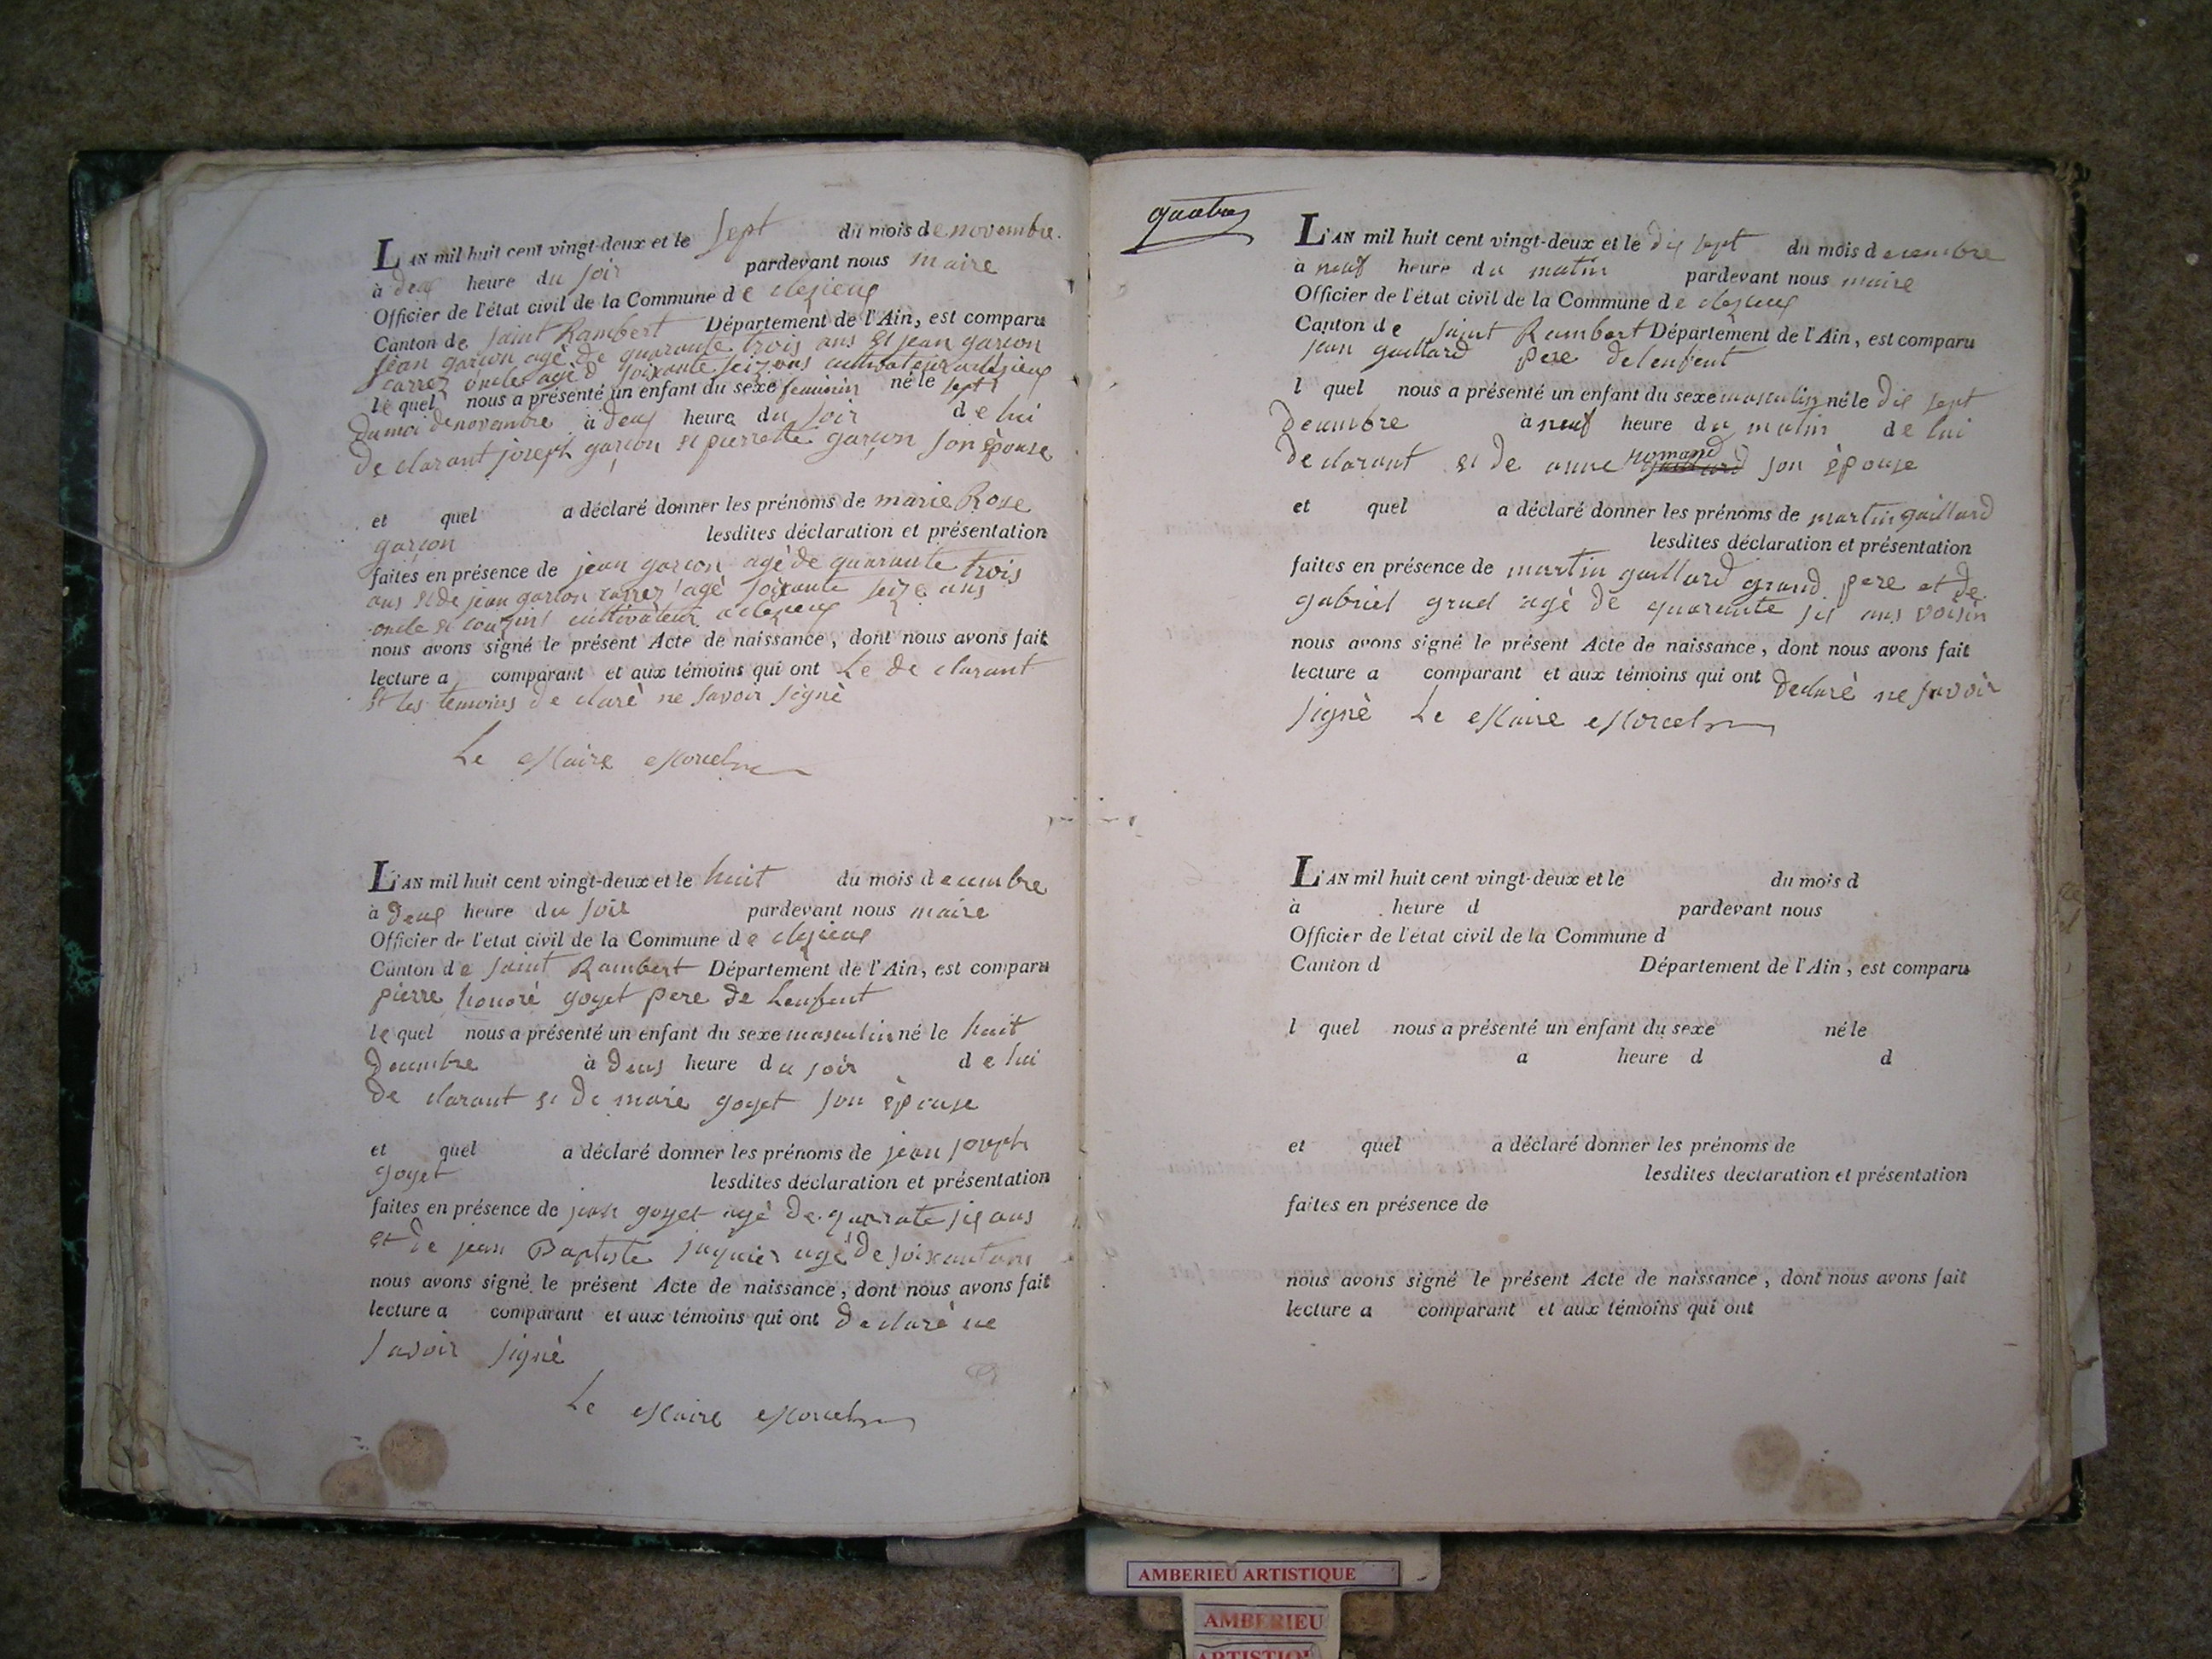 L'AN mil huit cent vingt-deux et le sept du mois de novembre.
à deux heure du soir pardevant nous maire
Officier de l'état civil de la Commune de clezieux
Canton de Saint Rambert Département de l'Ain, est comparu
jean garçon agè de quarante trois ans et jean garcon
carrez oncle agè d soixante seiz ans cultivateur a clezieux
le quel nous a présenté un enfant du sexe feminin né le sept
du moi de novembre à deux heure du soir de lui
de clarant joseph garçon et pierrette garçon son èpouse
et quel a déclaré donner les prénoms de marie Rose
garçon lesdites déclaration et présentation
faites en présence de jean garcon agè de quarante trois
ans et de jean garcon carrez agè soixante seize ans
oncle et couzins cultivateur a clezieux
nous avons signé le présent Acte de naissance, dont nous avons fait
lecture a comparant et aux témoins qui ont Le de clarant
et les temoins de clarè ne savoir signè
Le Maire Morcel
L'AN mil huit cent vingt-deux et le huit du mois decembre
à deux heure du soir pardevant nous maire
Officier de l'état civil de la Commune de clezieux
Canton de Saint Rambert Département de l'Ain, est comparu
pierre honorè goyet pere de Lenfent
le quel nous a présenté un enfant du sexe masculin né le huit
decembre à deux heure du soir de lui
de clarant et de marie goyet son èpouse
et quel a déclaré donner les prénoms de jean joseph
goyet lesdites déclaration et présentation
faites en présence de jean goyet agè de quarante six ans
et de jean Baptiste juquier agè de soixant ans
nous avons signé le présent Acte de naissance, dont nous avons fait
lecture a comparant et aux témoins qui ont de clarè ne
savoir signè
Le Maire Morcel
quatre
L'AN mil huit cent vingt-deux et le dix sept du mois decembre
à neuf heure du matin pardevant nous maire
Officier de l'état civil de la Commune de clezieux
Canton de saint Rambert Département de l'Ain, est comparu
jean gaillard pere de lenfent
l quel nous a présenté un enfant du sexe masculin né le dix sept
decembre à neuf heure du matin de lui
de clarant et de anne romand son èpouse
et quel a déclaré donner les prénoms de martin gaillard
lesdites déclaration et présentation
faites en présence de martin gaillard grand pere et de
gabriel grud agè de quarante six ans voisin
nous avons signé le présent Acte de naissance, dont nous avons fait
lecture a comparant et aux témoins qui ont declarè ne savoir
signè Le Maire Morcel
L'AN mil huit cent vingt-deux et le du mois d
à heure d pardevant nous
Officier de l'état civil de la Commune d
Canton d Département de l'Ain, est comparu
l quel nous a présenté un enfant du sexe né le
a heure d d
et quel a déclaré donner les prénoms de
lesdites déclaration et présentation
faites en présence de
nous avons signé le présent Acte de naissance, dont nous avons fait
lecture a comparant et aux témoins qui ont
AMBERIEU ARTISTIQUE
AMBERIEU
ARTISTIQUE